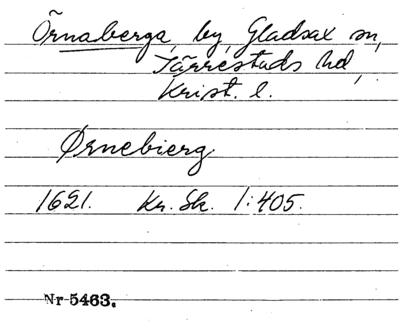 Örnaberga, by, Gladsax sn,
Järrestads hd,
Krist. l.
Ørnebierg
1621. Kr. Sk. 1:405.
Nr 5463.